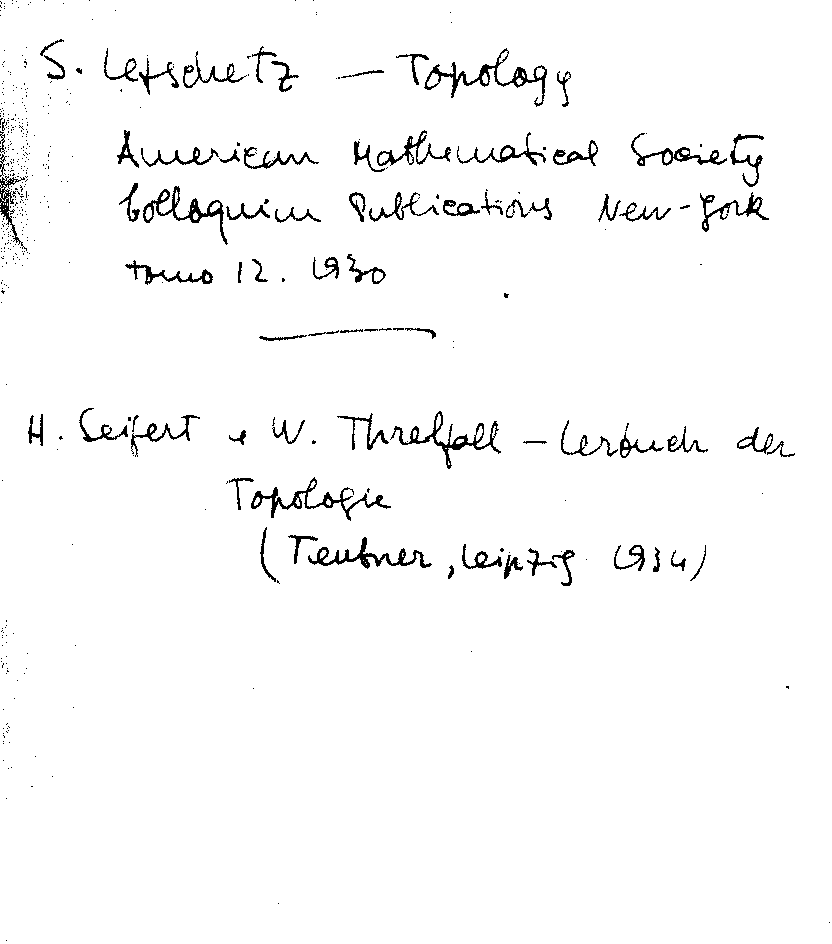 S. Lefschetz — Topology
American Mathematical Society
Colloquium Publications New-York
tomo 12. 1930
H. Seifert e W. Threlfall – Lerbuch der
Topologie
(Teubner, Leipzig 1934)